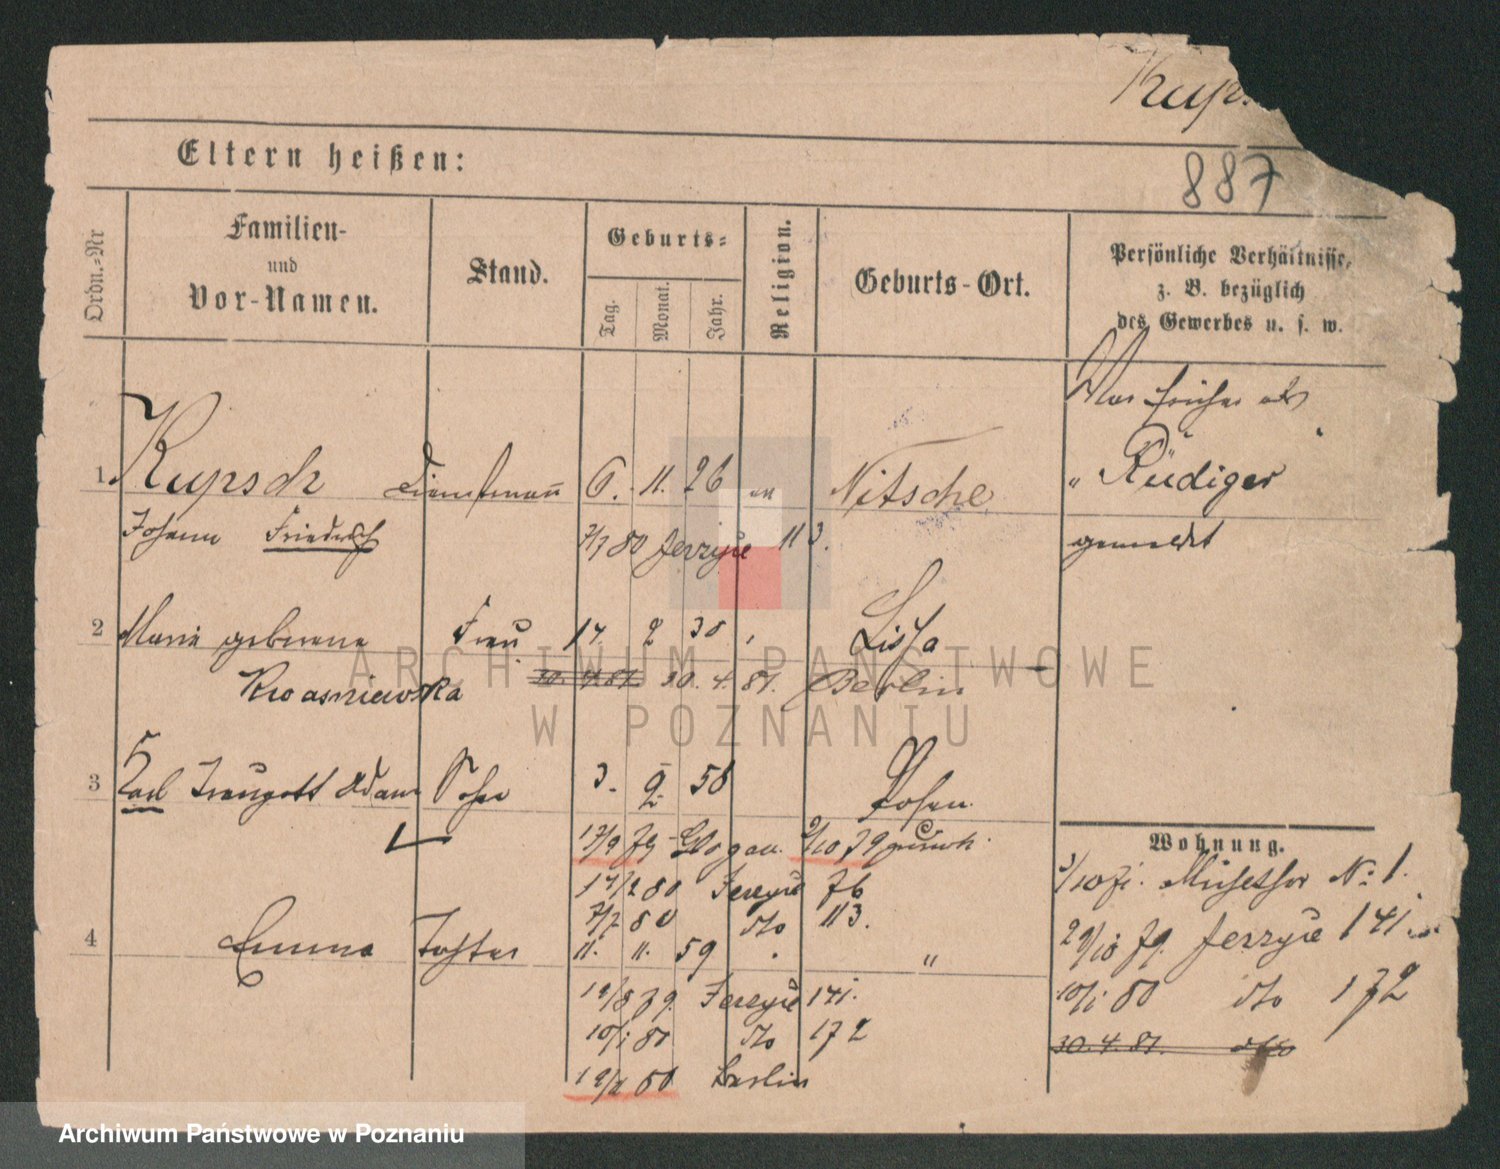 Kup
887
Eltern heißen:
Ordn.-Nr
Familien-
und
Vor-Namen.
Stand.
Geburts-
Tag.
Monat.
Jahr.
Religion.
Geburts-Ort.
Persönliche Verhältnisse,
z. B. bezüglich
des Gewerbes u. s. w.
War früher als
1 Kupsch Dienstmann 6. 11. 26 Nitsche
" Rüdiger
Johann Friedrich 80 Jerzyce 113.
gemeldet
2 Marie geborene Frau 17. 2 30 Lissa
Kwasniewska 30.4.81. 30.4.81. Berlin
3 Carl Traugott Adam Sohn 3. 9 58 Posen
17/9 79 Glogau. 9/10 79 zurück.
Wohnung.
17/2 80 Jerzyce 76
No 1.
7/7 80 dto 113.
4 Emma Tochter 11. 11. 59 "
29/10 79. Jerzyce 141
19/8 79. Jerzyce 141.
10/1 80 dto 172
10/1 80 dto 172
30.4.81. dto
80 Berlin
ARCHIWUM PAŃSTWOWE
W POZNANIU
Archiwum Państwowe w Poznaniu